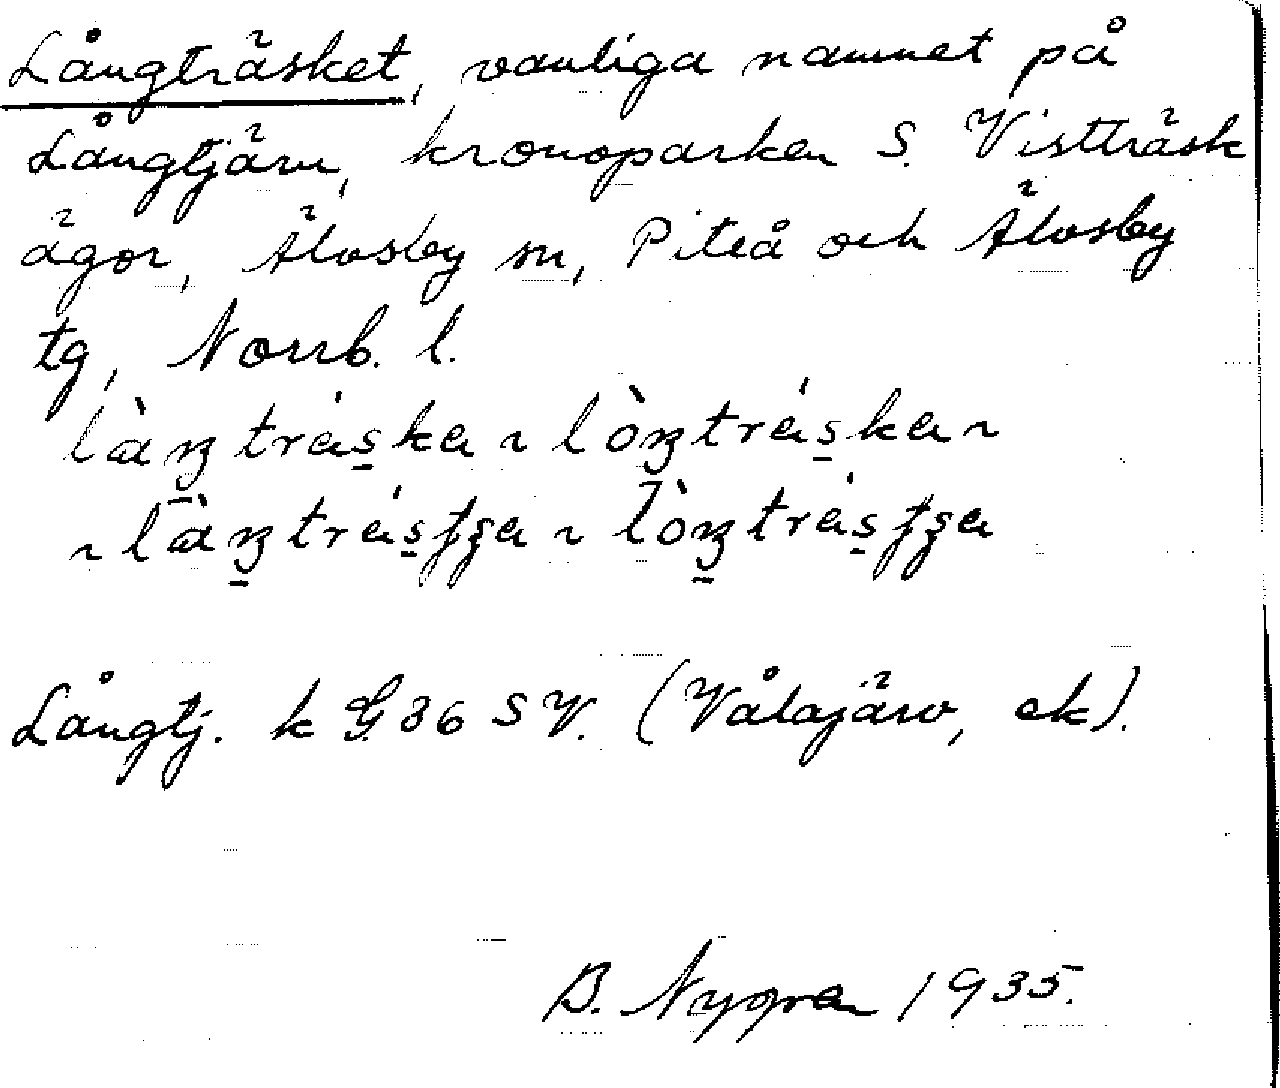 Långträsket, vanliga namnet på
Långtjärn, kronoparken S. Vistträsk
ägor, Älvsby sn, Piteå och Älvsby
tg, Norrb. l.
làŋtráska ~ lòŋtráska ~
~ làŋtrásʃʒa ~ lòŋtrásʃʒa
Långtj. k G. 36 SV. (Vålajärv, ek).
B. Nygren 1935.